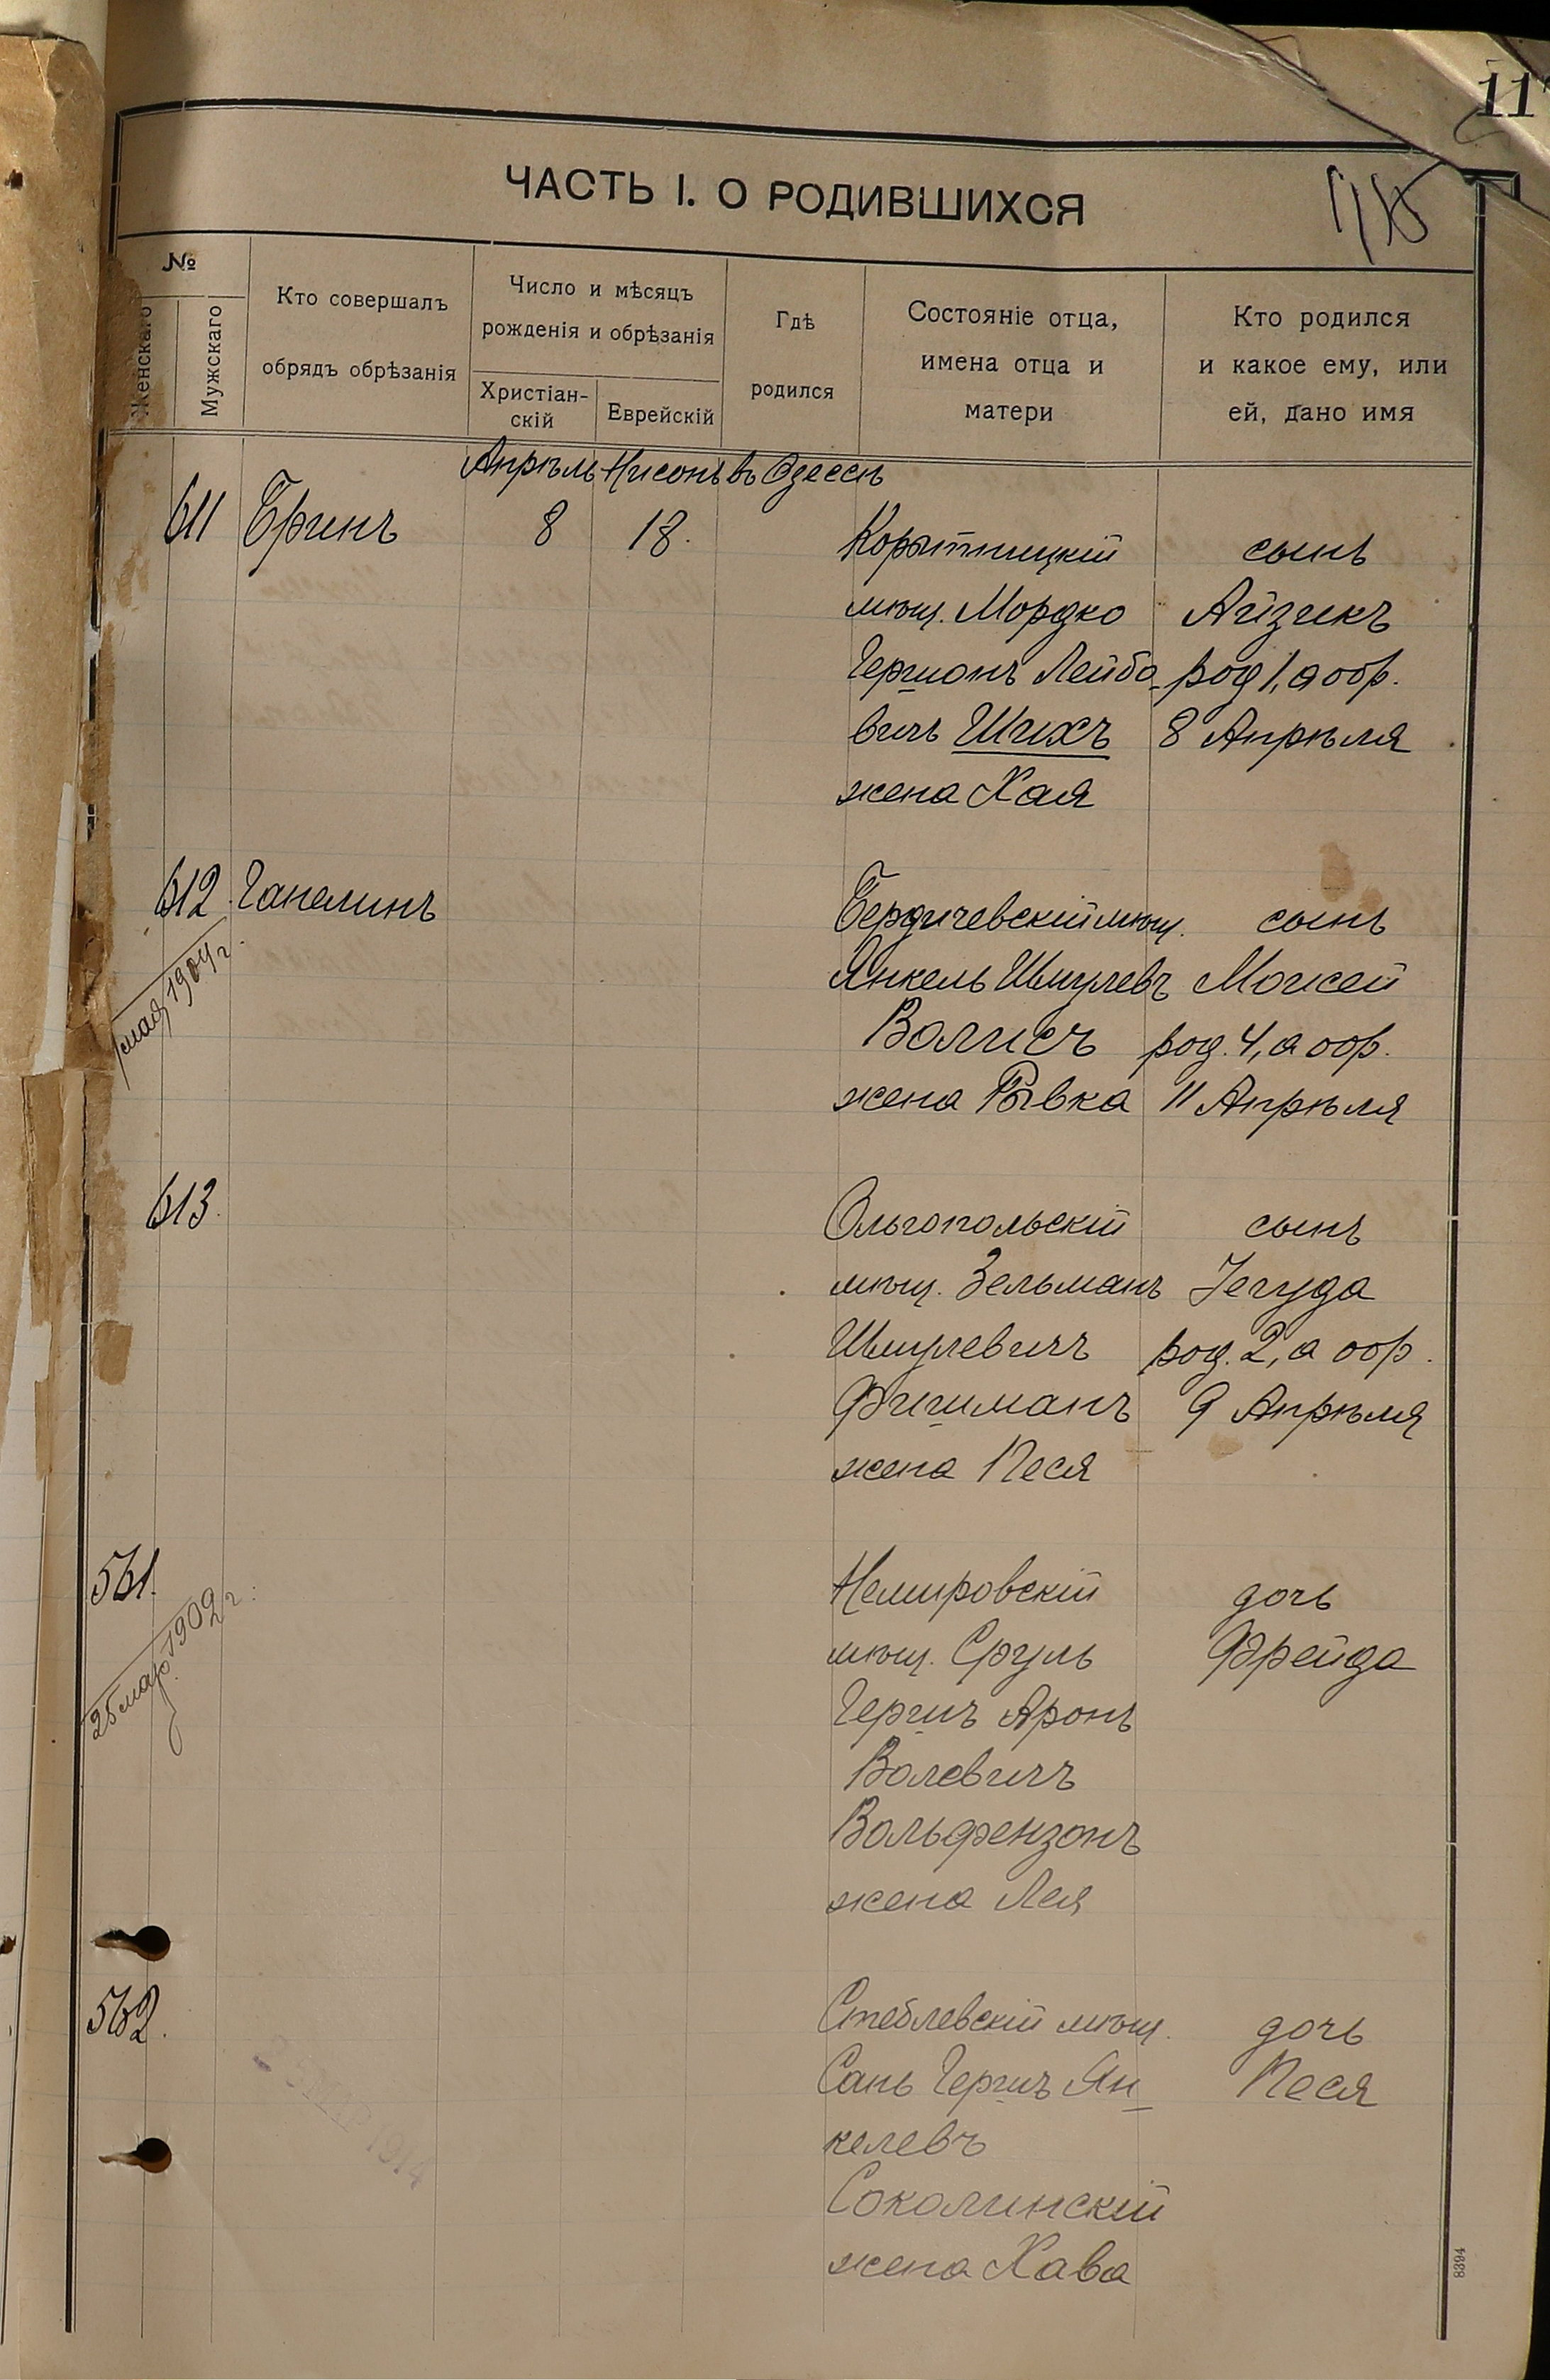 11
ЧАСТЬ I. О РОДИВШИХСЯ
№
Женскаго
Мужскаго
Кто совершалъ
обрядъ обрѣзанія
Число и мѣсяцъ
рожденія и обрѣзанія
Христіан-
скій
Еврейскій
Гдѣ
родился
Состояніе отца,
имена отца и
матери
Кто родился
и какое ему, или
ей, дано имя
Апрѣль Нисонъ въ Одессѣ
611 Бринъ 8 18. Корытницкій сынъ
мѣщ. Мордко Айзикъ
Гершонъ Лейбо- род 1, а обр.
вичъ Шихъ 8 Апрѣля
жена Хая
612 Ганелинъ Бердичевскій мѣщ. сынъ
Янкель Шмулевъ Моисей
Волисъ род. 4, а обр.
жена Рывка 11 Апрѣля
мая 1904 г.
613. Ольгопольскій сынъ
мѣщ. Зельманъ Іегуда
Шмулевичъ род. 2, а обр.
Фишманъ 9 Апрѣля
жена Песя
561. Немировскій дочь
мѣщ. Сруль Фрейда
Гершъ Аронъ
Волевичъ
Вольфензонъ
жена Лея
25 мар. 1909 г.
562. Стеблевскій мѣщ. дочь
Сань Гершъ Ян- Песя
келевъ
Соколинскій
жена Хава
8394